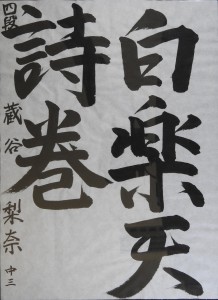 白楽天
詩巻
四段 蔵谷梨奈 中三